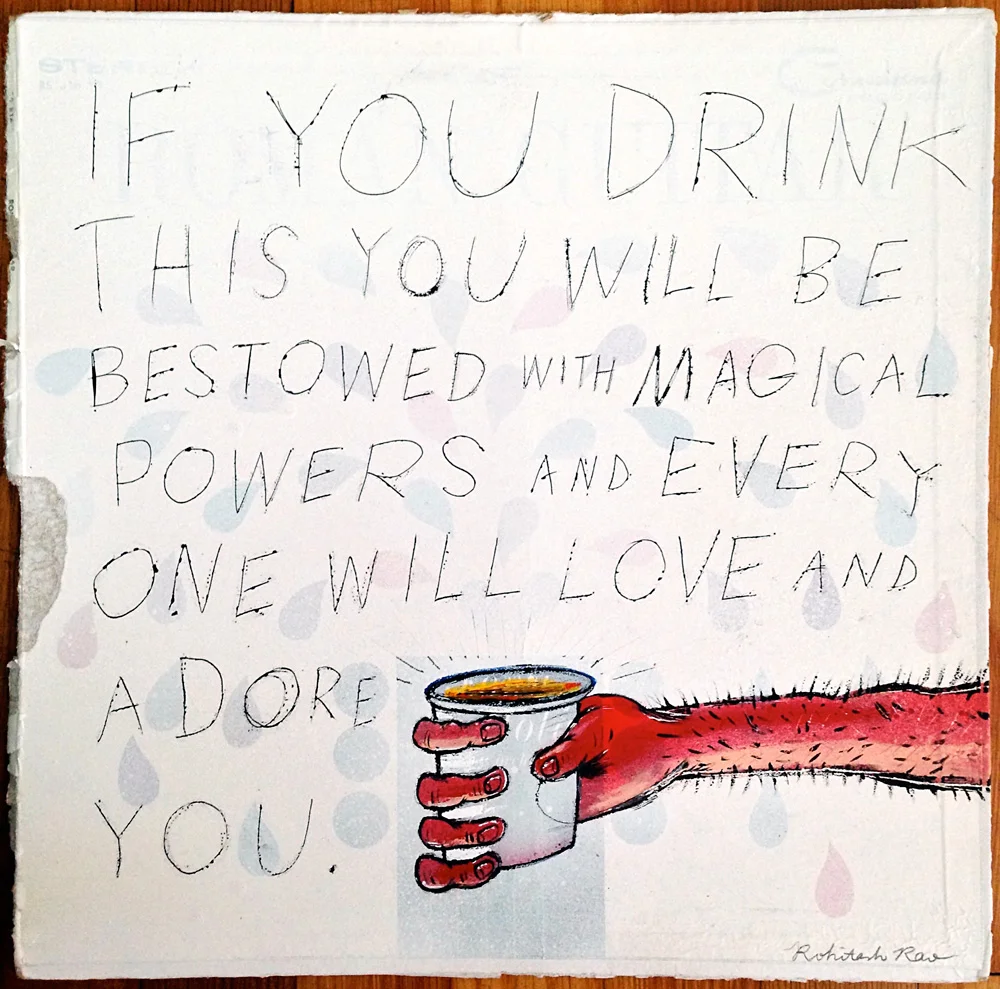 IF YOU DRINK
THIS YOU WILL BE
BESTOWED WITH MAGICAL
POWERS AND EVERY
ONE WILL LOVE AND
ADORE
YOU.
Rohitash Rao